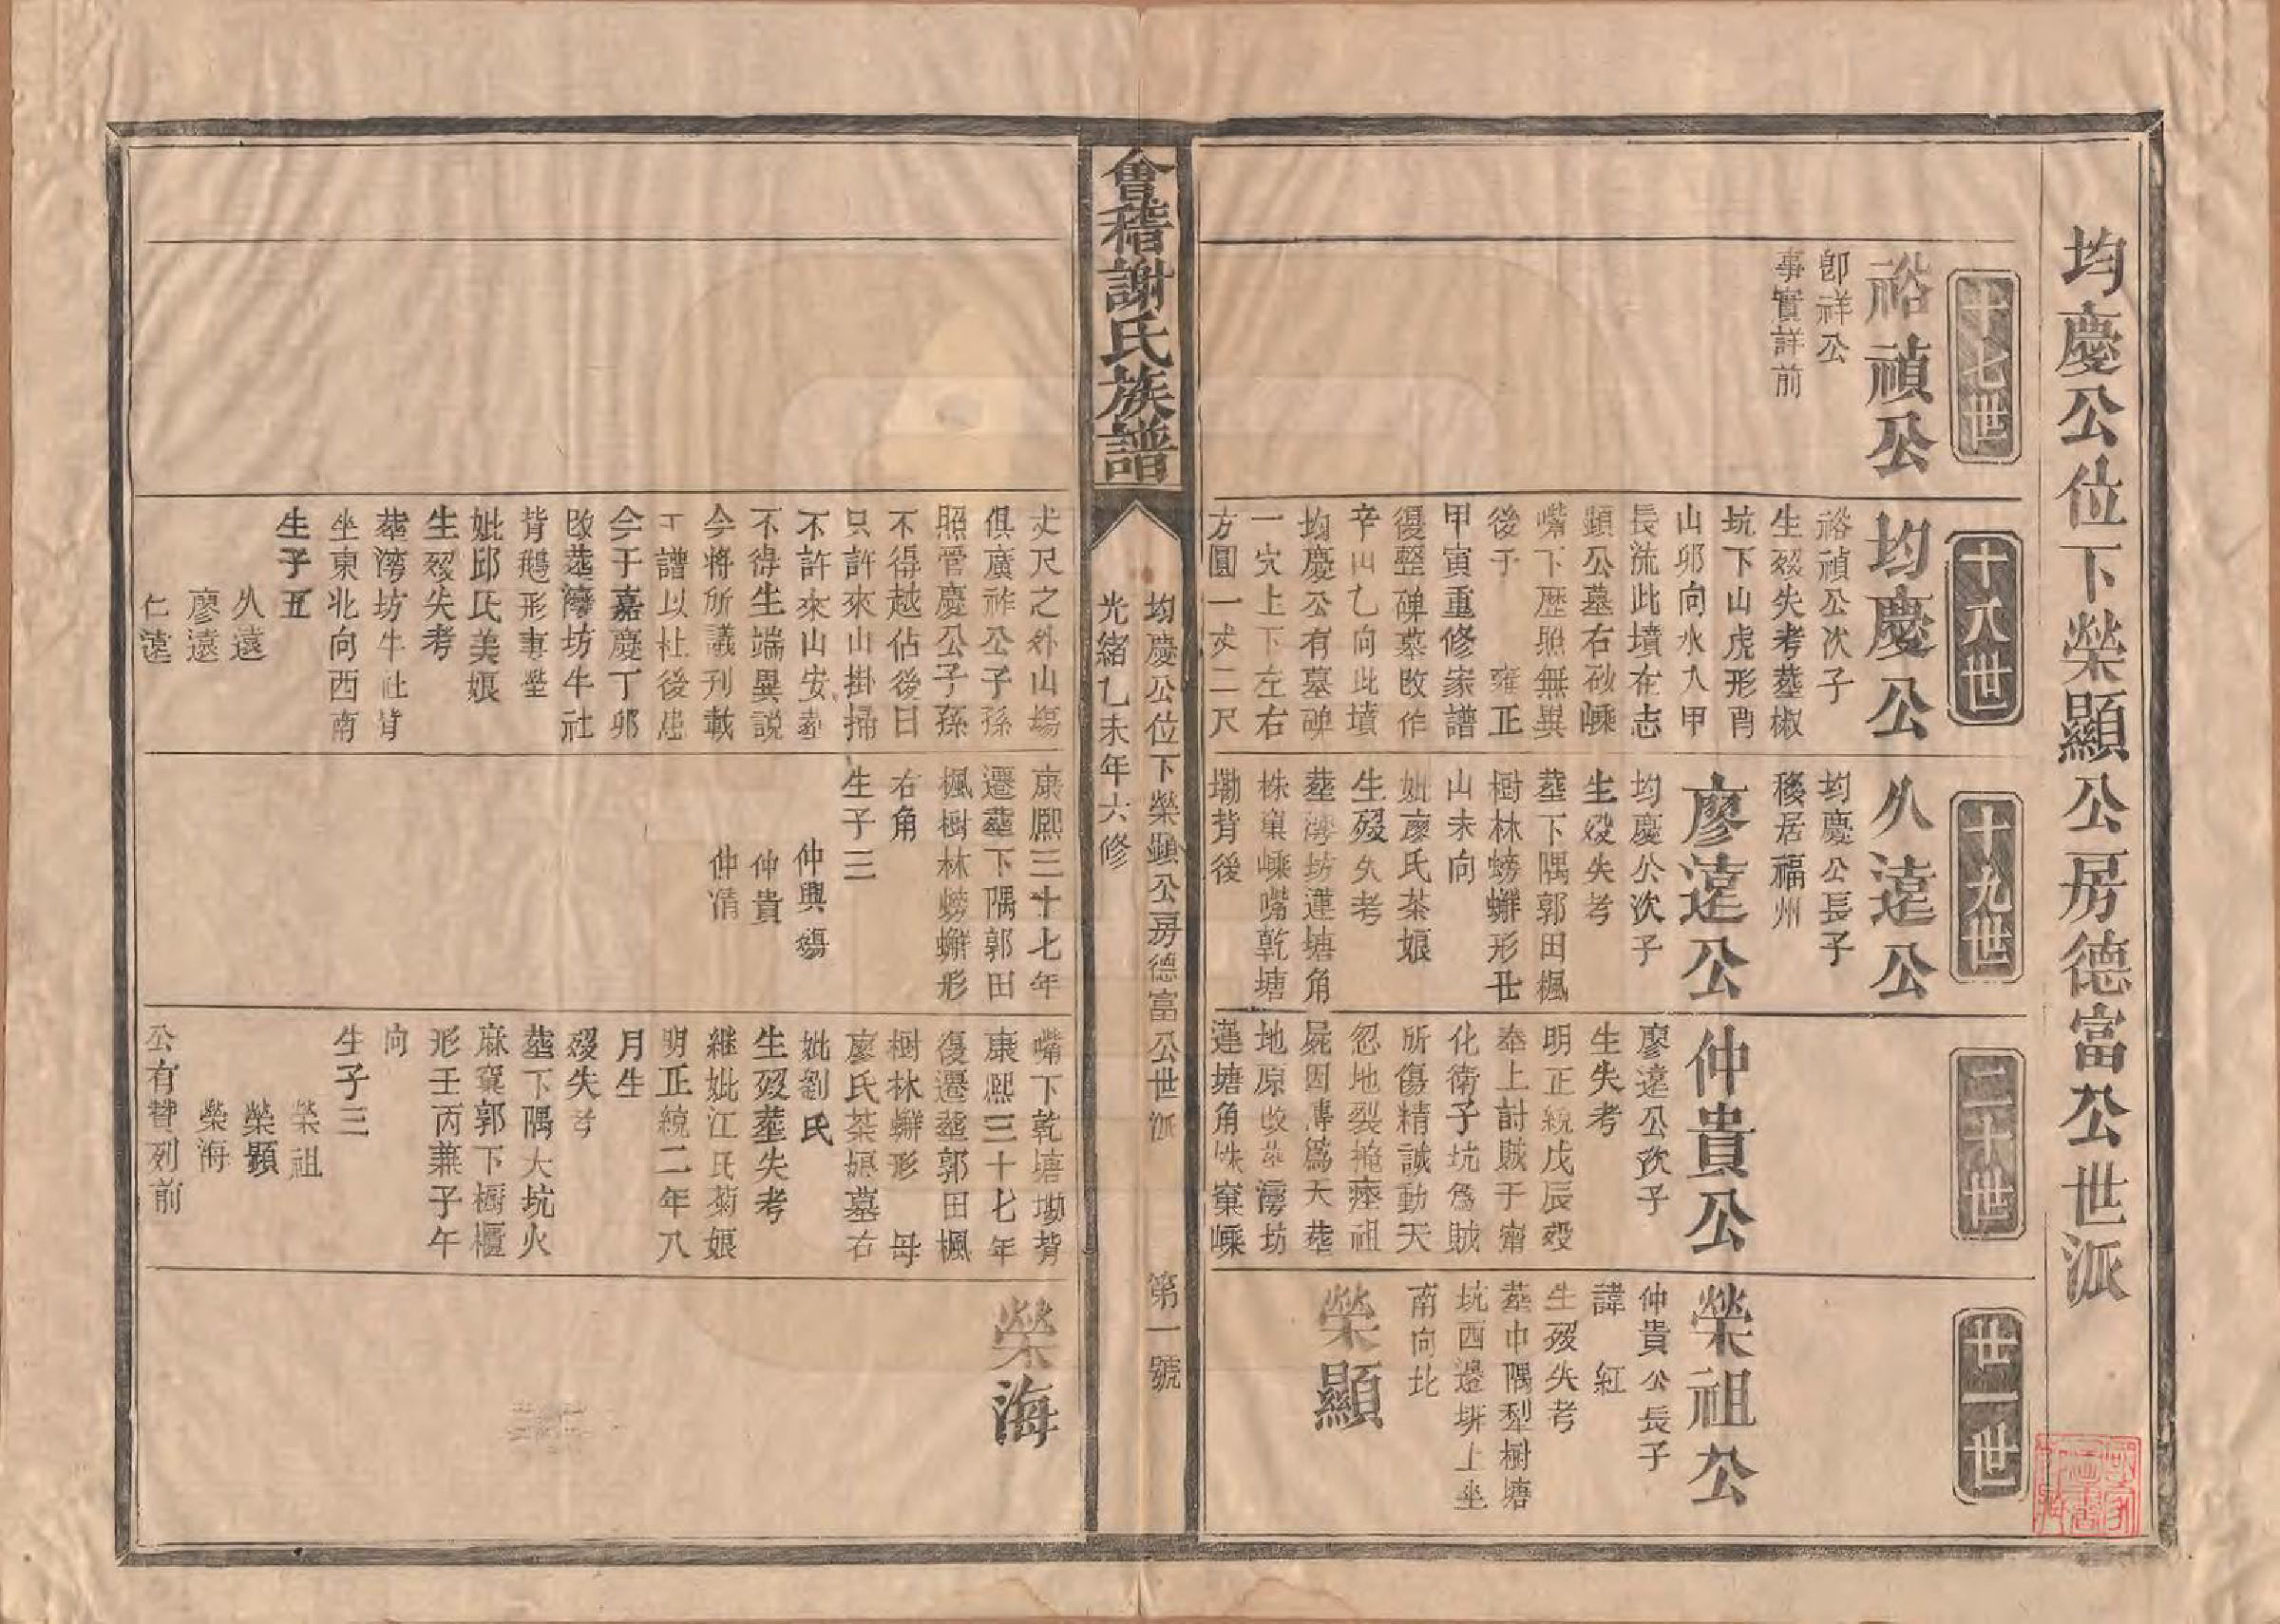 均慶公位下榮顯公房德富公世派
十七世
裕禎公
卽祥公
事實詳前
十八世
均慶公
裕禎公次子
生歿失考葬椒
坑下山虎形酉
山卯向水入甲
長流此墳在志
顯公墓右砂嵊
嘴下歷照無異
後于 雍正
甲寅重修家譜
復整碑墓改作
辛山乙向此墳
均慶公有墓碑
一穴上下左右
方圓一丈二尺
丈尺之外山塲
俱廣祚公子孫
照管慶公子孫
不得越佔後日
只許來山掛掃
不許來山安葬
不得生端異説
今將所議刊載
于譜以杜後患
今于嘉慶丁卯
改葬灣坊牛社
背鵝形事塋
妣邱氏美娘
生歿失考
葬灣坊牛社背
坐東北向西南
生子五
久遠
廖遠
仁遠
十九世
久遠公
均慶公長子
移居福州
廖遠公
均慶公次子
生歿失考
葬下隅郭田楓
樹林螃蠏形丑
山未向
妣廖氏茶娘
生歿久考
葬灣坊蓮塘角
株窠嵊嘴乾塘
墈背後
康熙三十七年
遷葬下隅郭田
楓樹林螃蠏形
右角
生子三
仲興 殤
仲貴
仲清
二十世
仲貴公
廖遠公次子
生失考
明正統戊辰歿
奉上討賊于甯
化衛子坑爲賊
所傷精誠動天
忽地裂掩瘞祖
屍因傳爲天葬
地原改葬灣坊
蓮塘角株窠嵊
嘴下乾塘墈背
康熙三十七年
復遷葬郭田楓
樹林蠏形 母
廖氏茶娘墓右
妣劉氏
生歿葬失考
継妣江氏菊娘
明正統二年八
月生
歿失考
葬下隅大坑火
麻窠郭下櫥櫃
形壬丙兼子午
向
生子三
榮祖
榮顯
榮海
公有贊列前
廿一世
榮祖公
仲貴公長子
諱 紅
生歿失考
葬中隅犁樹塘
坑西邊塀上坐
南向北
榮顯
榮海
會稽謝氏族譜
均慶公位下榮顯公房德富公世派 第一號
光緒乙未年六修